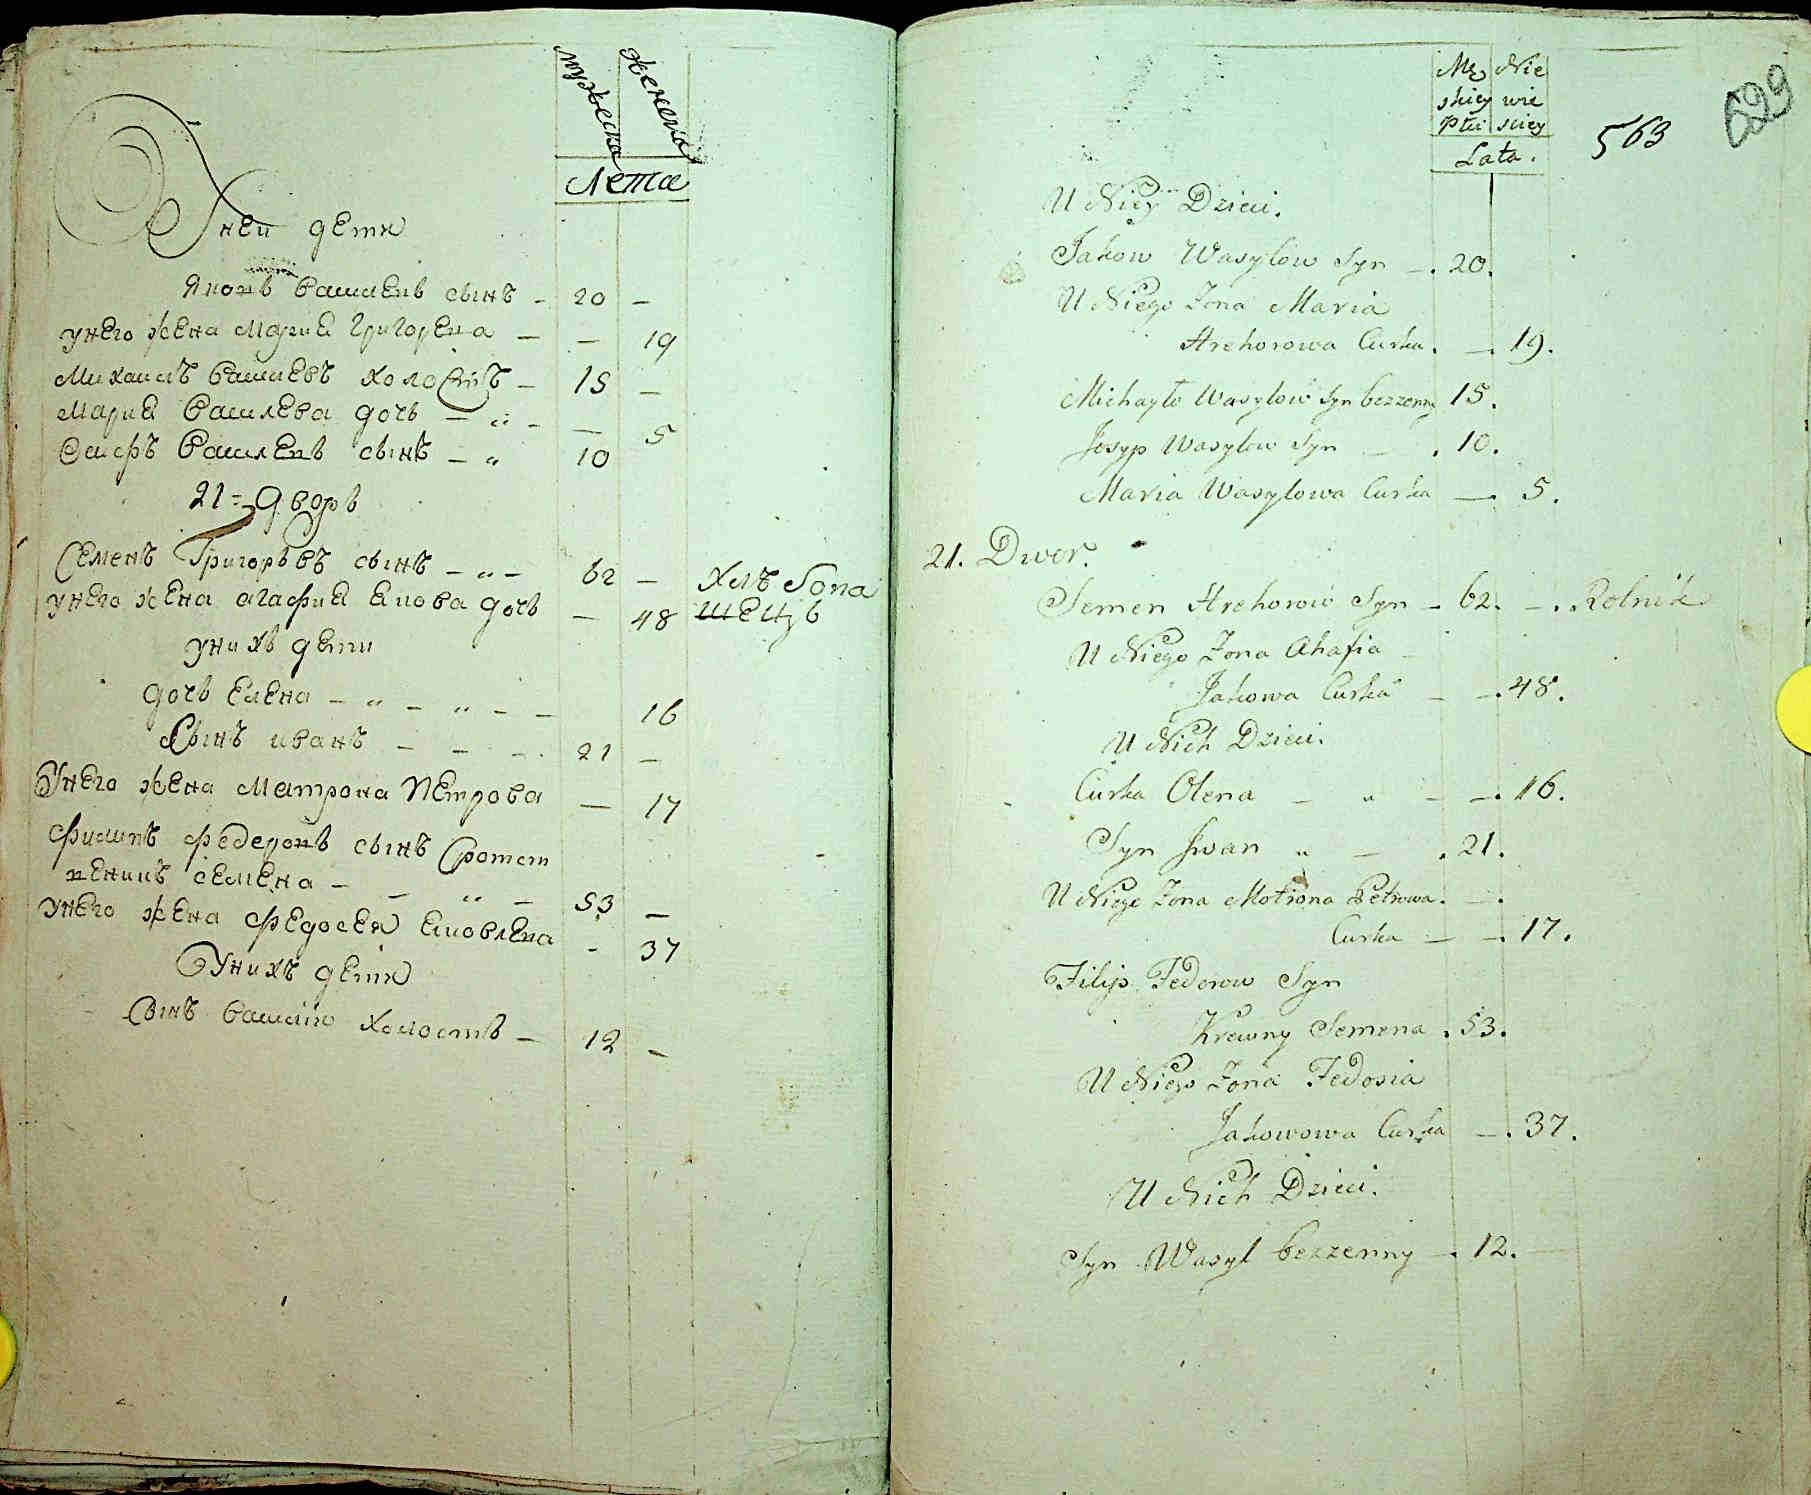 мужеска
женска
Лета
У неи дети
Яковъ Василевъ сынъ - 20 -
у него жена Мариа Григорева - - 19
Михаилъ Василевъ холостъ - 15 -
Мариа Василева дочь - " - - 5
Осифъ Василевъ сынъ - " 10
21 = Дворъ
Семенъ Григорьевъ сынъ - " - 62 - Хлѣбопа
у него жена агафиа Якова дочь - 48 шецъ
у нихъ дети
дочь Елена - " - " - - 16
Сынъ иванъ - - - 21 -
У него жена Матрона Петрова - 17
Филипъ Федоровъ сынъ
Семена - - " - 53 -
у него жена Федосея Яковлева - 37
У нихъ дети
Сынъ Василий холостъ - 12 -
Mę Nie
skiey wie
Płci sciey
Lata.
563
699
U Niey Dzieci.
Jakow Wasylow Syn - . 20.
U Niego Zona Maria
Hrehorowa Curka . - . 19.
Michayło Wasylow Syn bezzenny 15.
Josyp Wasylow Syn - . 10.
Maria Wasylowa Curka - . 5.
21. Dwor.
Semen Hrehorow Syn - 62. - . Rolnik
U Niego Zona Ahafia -
Jakowa Curka - - . 48.
U Nich Dzieci.
Curka Olena - " - - . 16.
Syn Iwan " - . 21.
U Niego Zona Motrona Petrowa . - .
Curka - - . 17.
Filip Fedorow Syn
Krewny Semena . 53.
U Niego Zona Fedosia
Jakowowa Curka - . 37.
U Nich Dzieci.
Syn Wasyl bezzenny - . 12. -